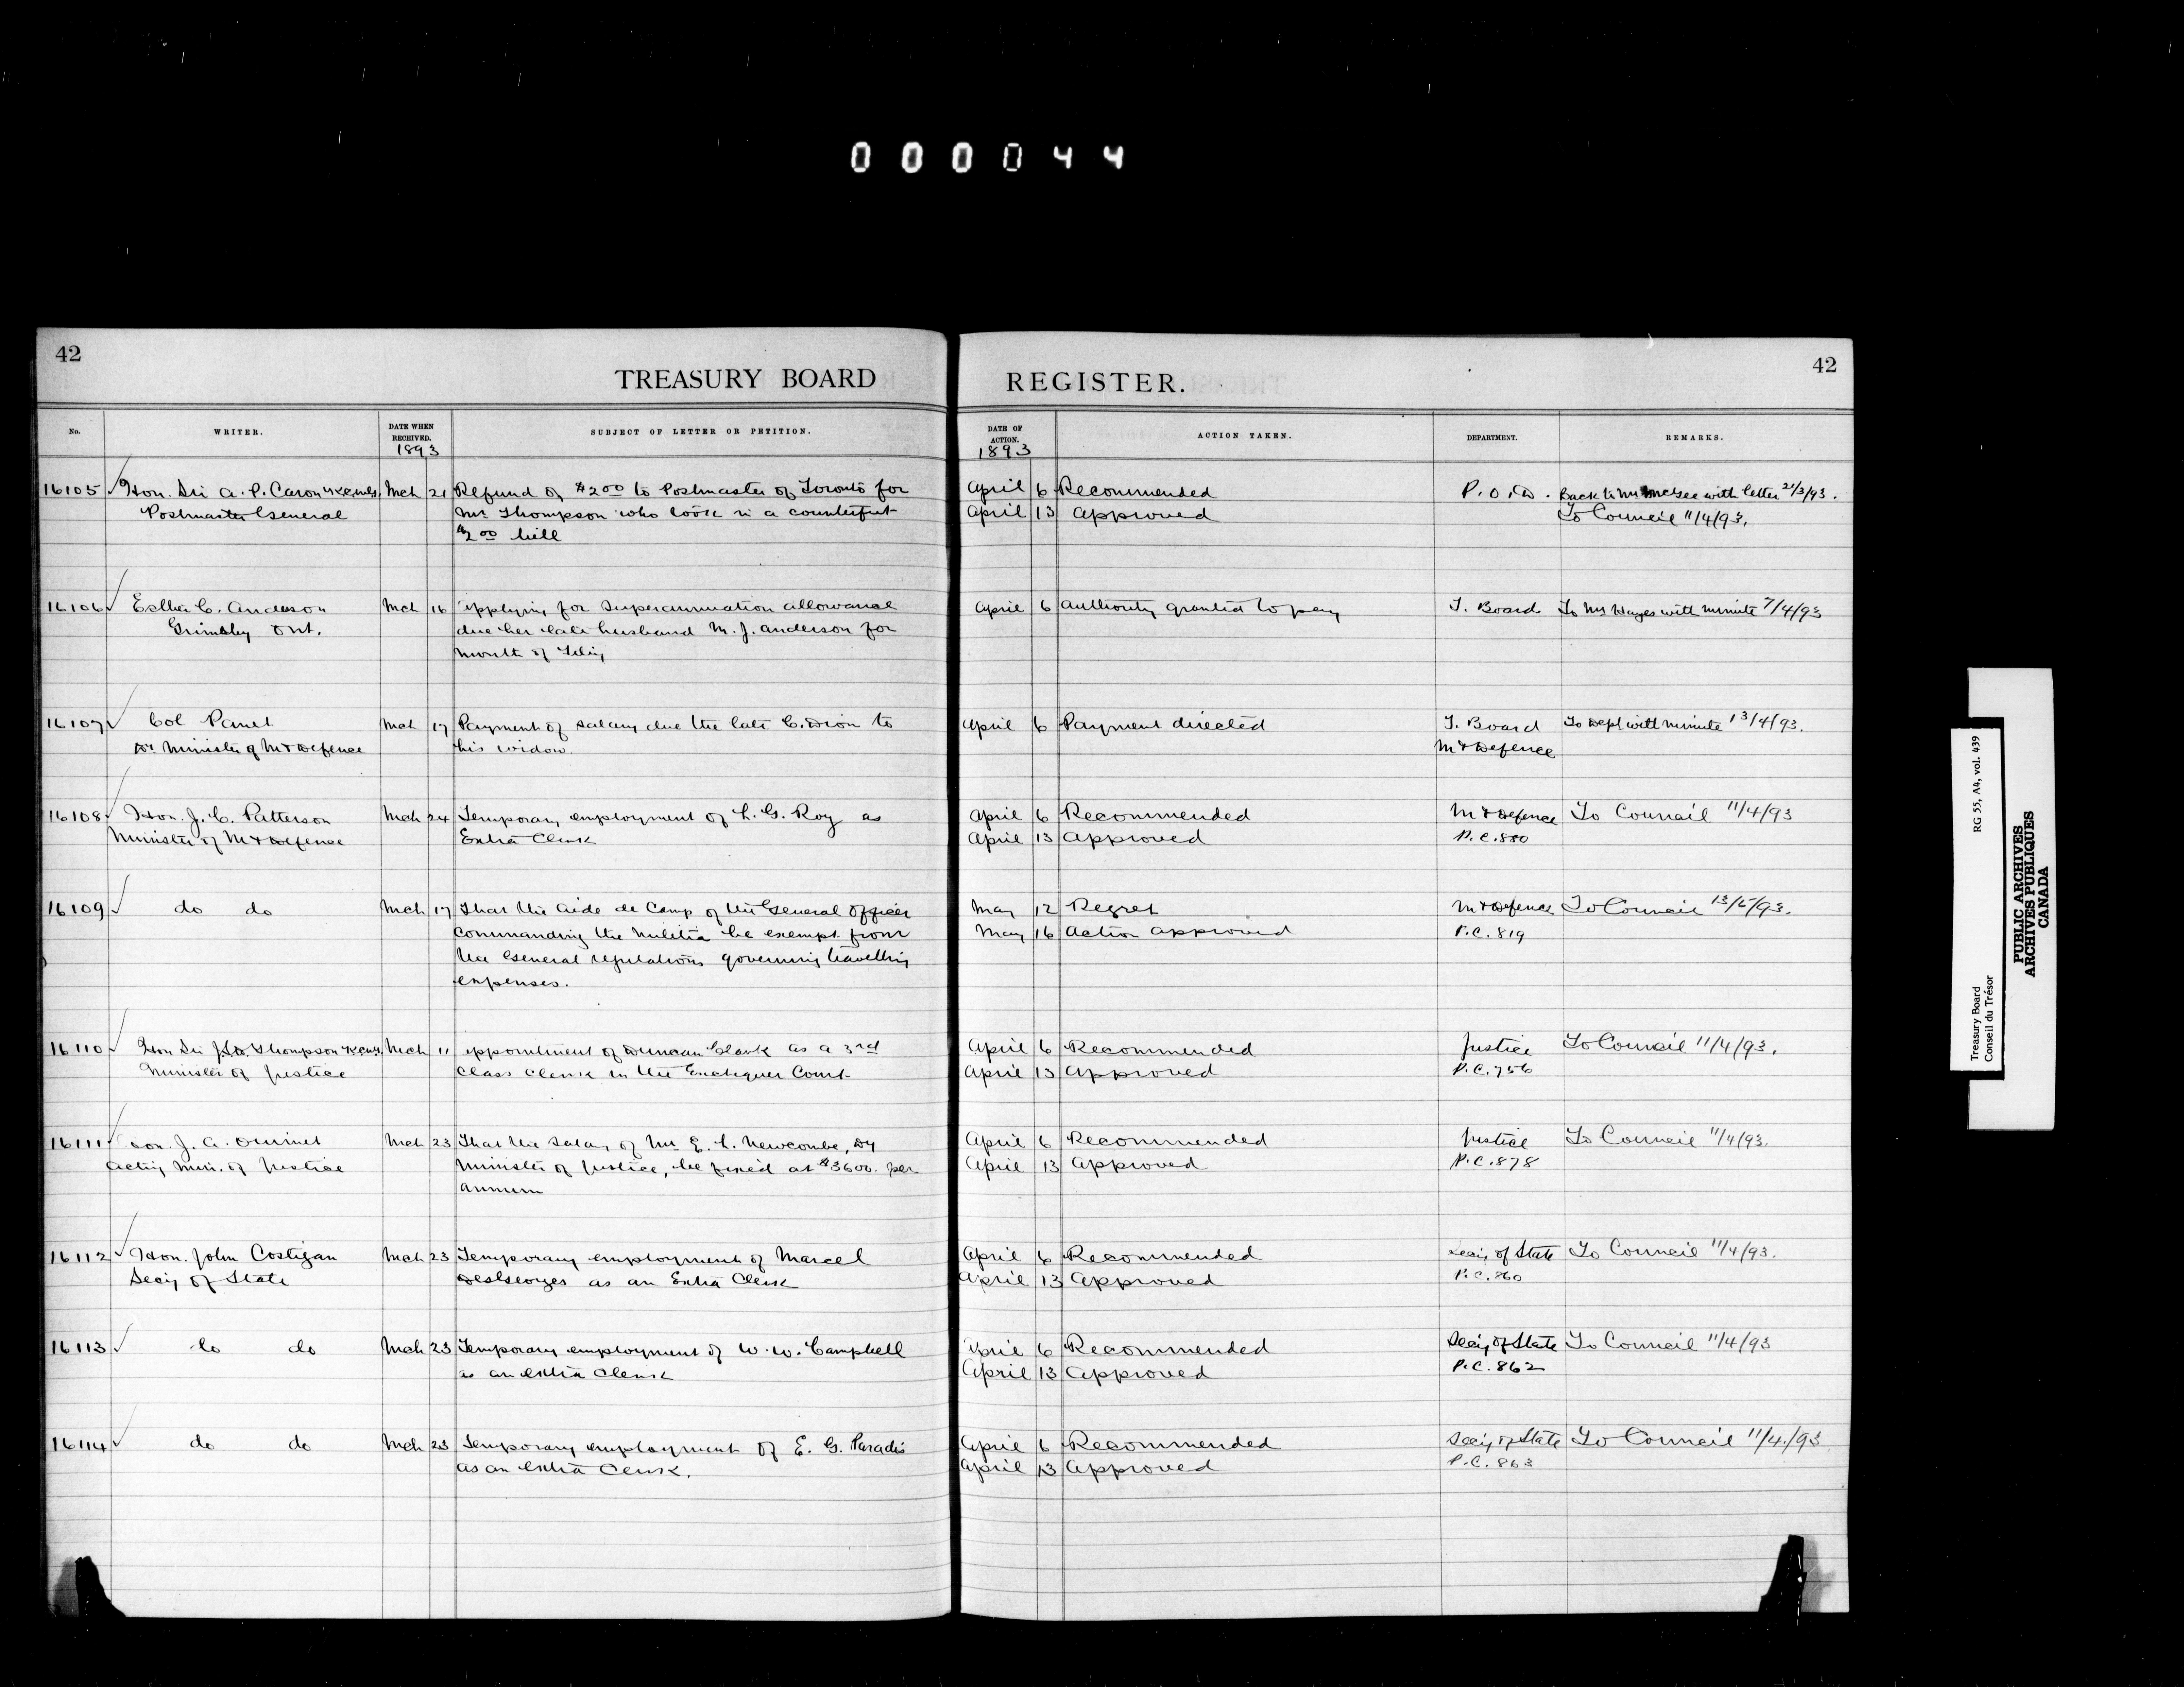 000044
42
TREASURY BOARD
No.
WRITER.
DATE WHEN RECEIVED.
1893
SUBJECT OF LETTER OR PETITION.
16105 Hon. Sir A. P. Caron K.C.M.G. Mch 21 Refund of $2.00 to Postmaster of Toronto for
Postmaster General Mr Thompson who took in a counterfeit
$2.00 bill
16106 Esther C. Anderson Mch 16 Applying for Superannuation allowance
Grimsby Ont. due her late husband M. J. Anderson for
month of Feby
16107 Col Panet Mch 17 Payment of salary due the late C. Dion to
Dy Minister of M & Defence his widow.
16108 Hon. J. C. Patterson Mch 24 Temporary employment of L. G. Roy as
Minister of M & Defence Extra Clerk
16109 do do Mch 17 That the Aide de Camp of the General Officer
commanding the Militia be exempt from
the General regulations governing travelling
expenses.
16110 Hon Sir J.S.D. Thompson K.C.M.G. Mch 11 appointment of Duncan Clark as a 3rd
Minister of Justice Class Clerk in the Exchequer Court
16111 Hon. J. A. Ouimet Mch 23 That the Salary of Mr E. L. Newcombe, Dy
Acting Min. of Justice Minister of Justice, be fixed at $3600. per
annum
16112 Hon. John Costigan Mch 23 Temporary employment of Marcel
Secy of State DesGeorges as an Extra Clerk
16113 do do Mch 23 Temporary employment of W. W. Campbell
as an extra Clerk
16114 do do Mch 23 Temporary employment of E. G. Paradis
as an extra Clerk.
42
REGISTER.
DATE OF ACTION.
1893
ACTION TAKEN.
DEPARTMENT.
REMARKS.
April 6 Recommended P.O.D. Back to Mr McGee with letter 21/3/93.
April 13 Approved To Council 11/4/93.
April 6 Authority granted to pay T. Board To Mr Hayes with minute 7/4/93
April 6 Payment directed T. Board To Dept with minute 13/4/93.
M & Defence
April 6 Recommended M & Defence To Council 11/4/93
April 13 Approved P.C. 880
May 12 Regret M & Defence To Council 13/5/93.
May 16 Action approved P.C. 819
April 6 Recommended Justice To Council 11/4/93.
April 13 Approved P.C. 756
April 6 Recommended Justice To Council 11/4/93.
April 13 Approved P.C. 878
April 6 Recommended Secy of State To Council 11/4/93.
April 13 Approved P.C. 860
April 6 Recommended Secy of State To Council 11/4/93
April 13 Approved P.C. 862
April 6 Recommended Secy of State To Council 11/4/93
April 13 Approved P.C. 863
Treasury Board RG 55, A4, vol. 439
Conseil du Trésor
PUBLIC ARCHIVES
ARCHIVES PUBLIQUES
CANADA